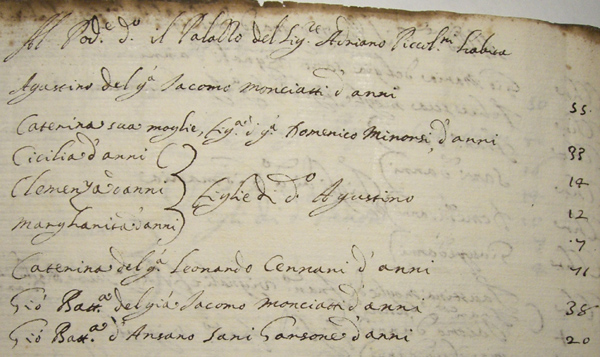 Al Pod.e d.o il Palazzo del Sig.re Adriano Piccol.mi habita
Agustino del q.m Iacomo Monciatti d'anni 55
Caterina sua moglie, fig.a d. q.m Domenico Minorsi, d'anni 33
Cicilia d'anni 14
Clemenza d'anni } figlie di d.o Agustino 12
Margharita d'anni 7
Caterina del q.m Leonardo Cennani d'anni 71
Gio Batt.a del già Iacomo Monciatti d'anni 38
Gio Batt.a d'Ansano Sani Garsone d'anni 20